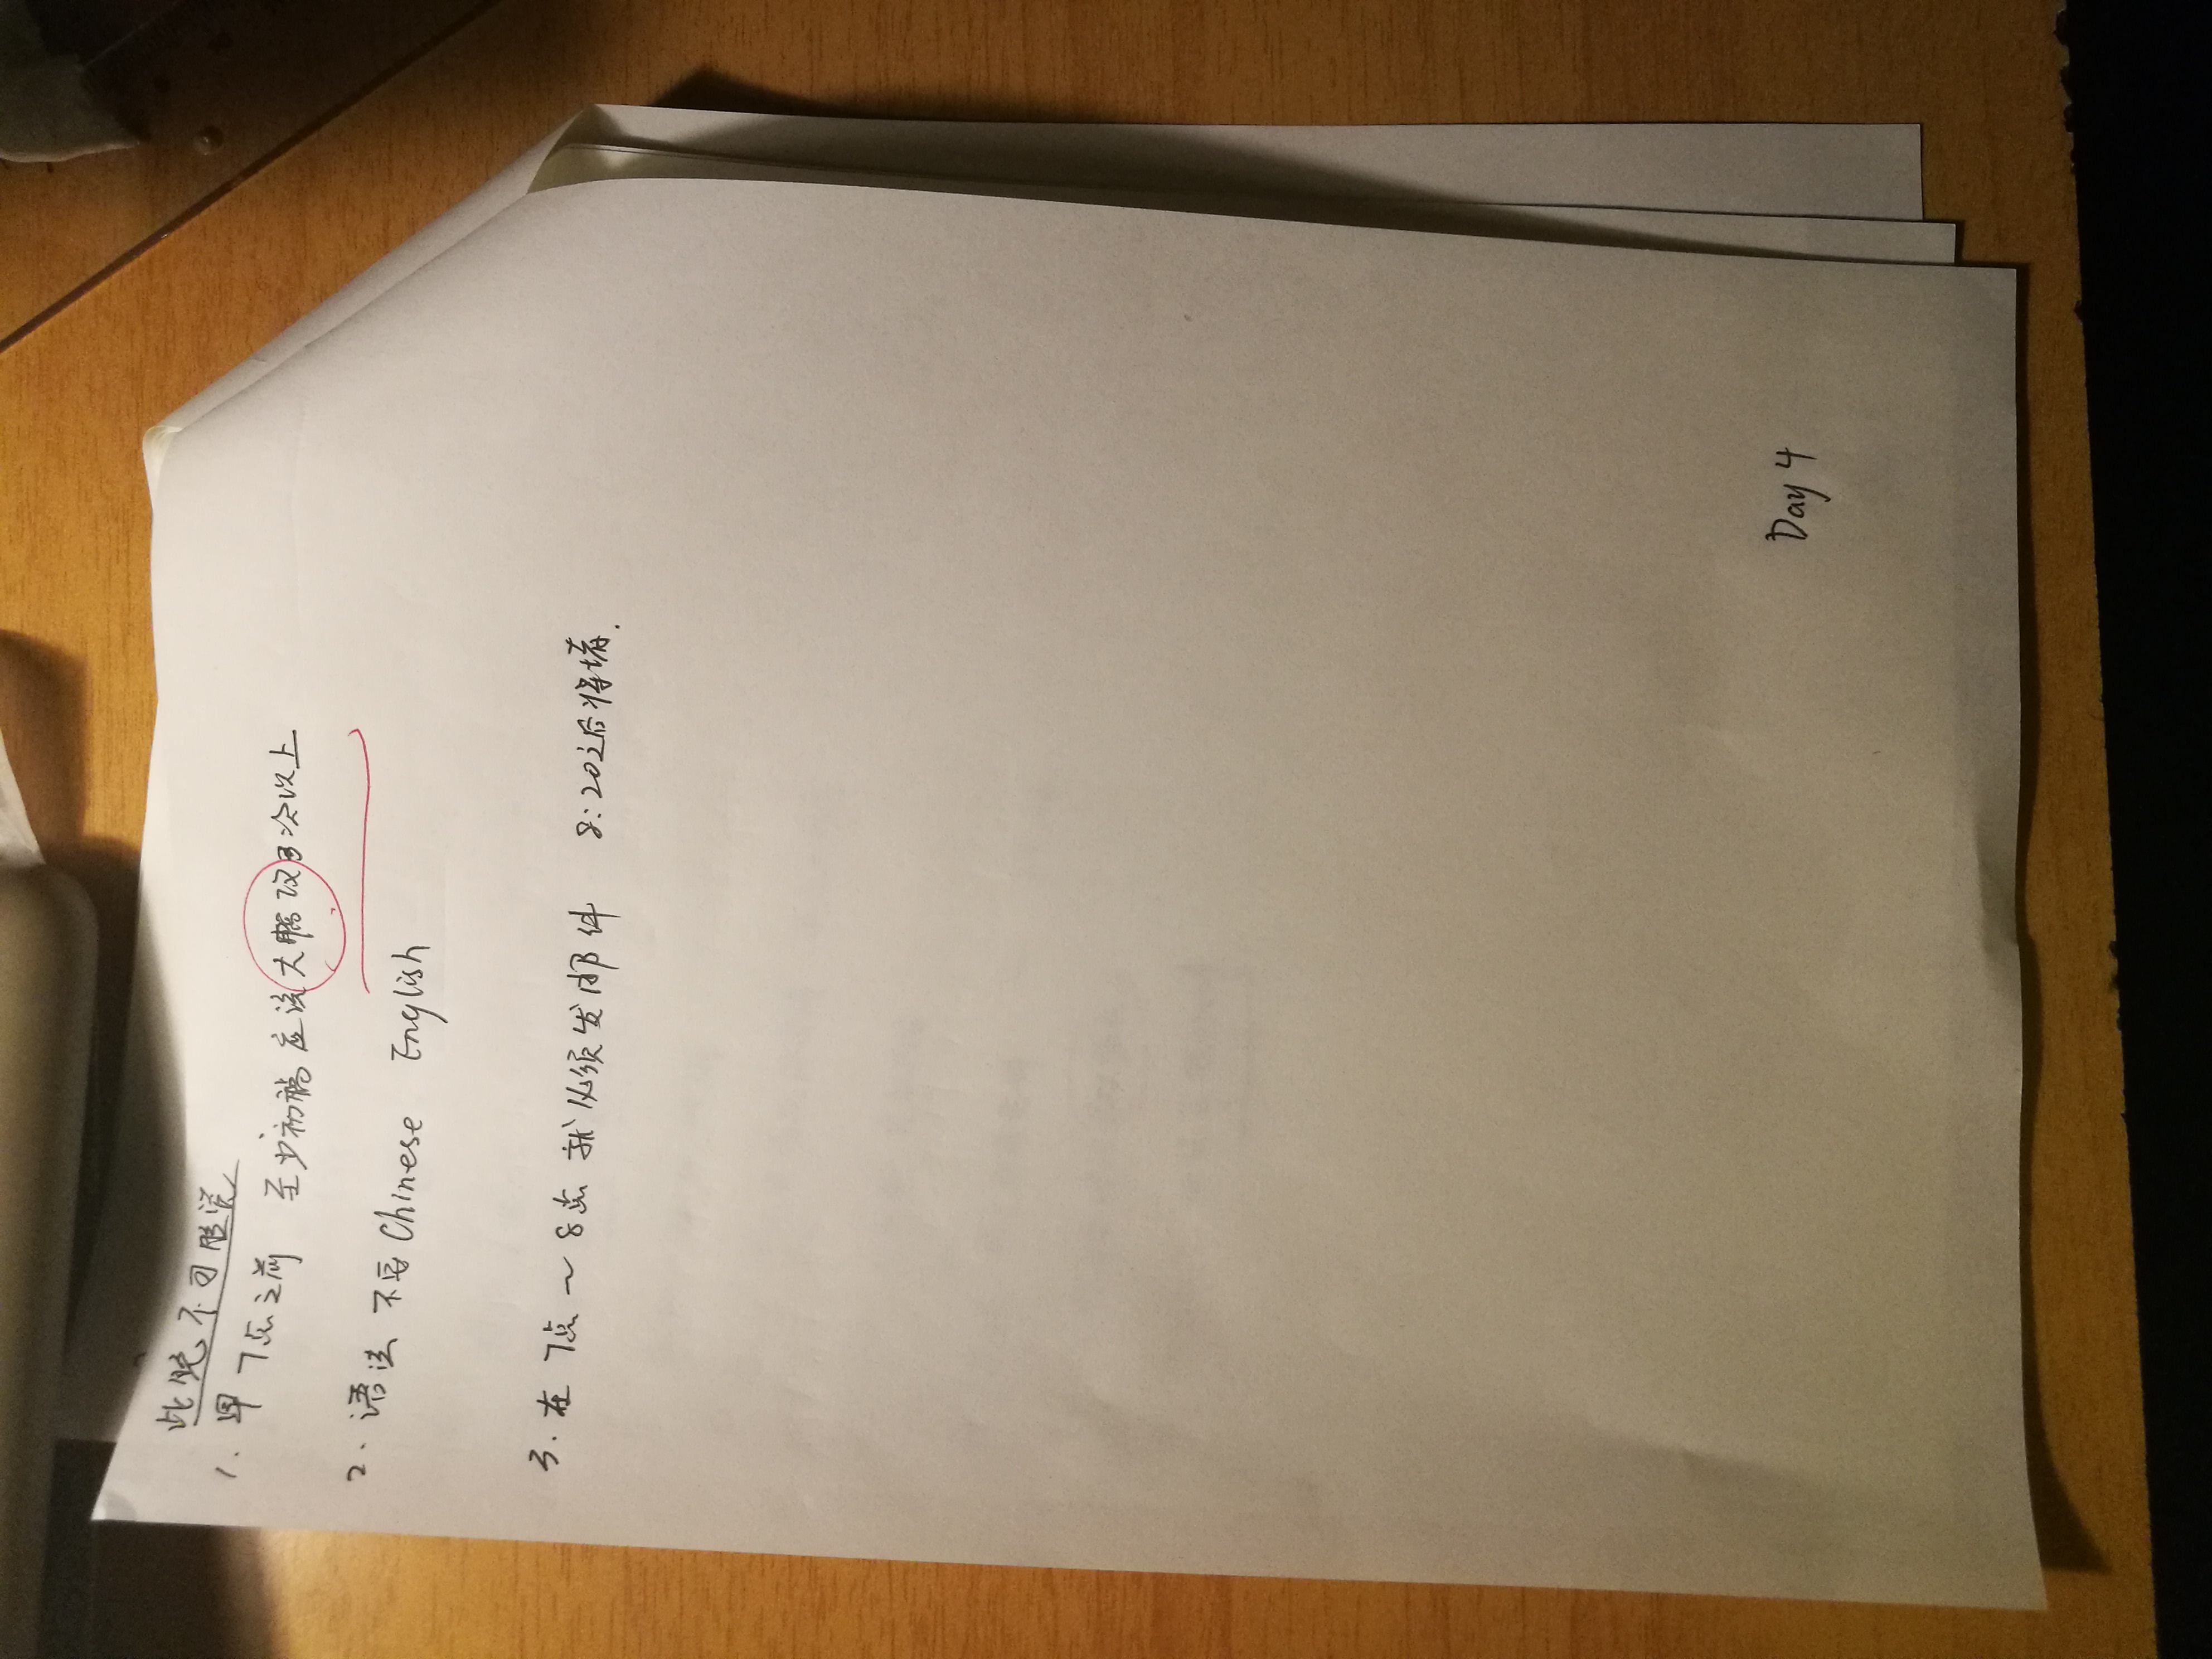 此晚不可熬夜
1. 早7点之前 至少初稿应该大幅改3次以上
2. 语法 不要 Chinese English
3. 在7点~8点就必须发邮件 8:20之后将堵.
Day 4